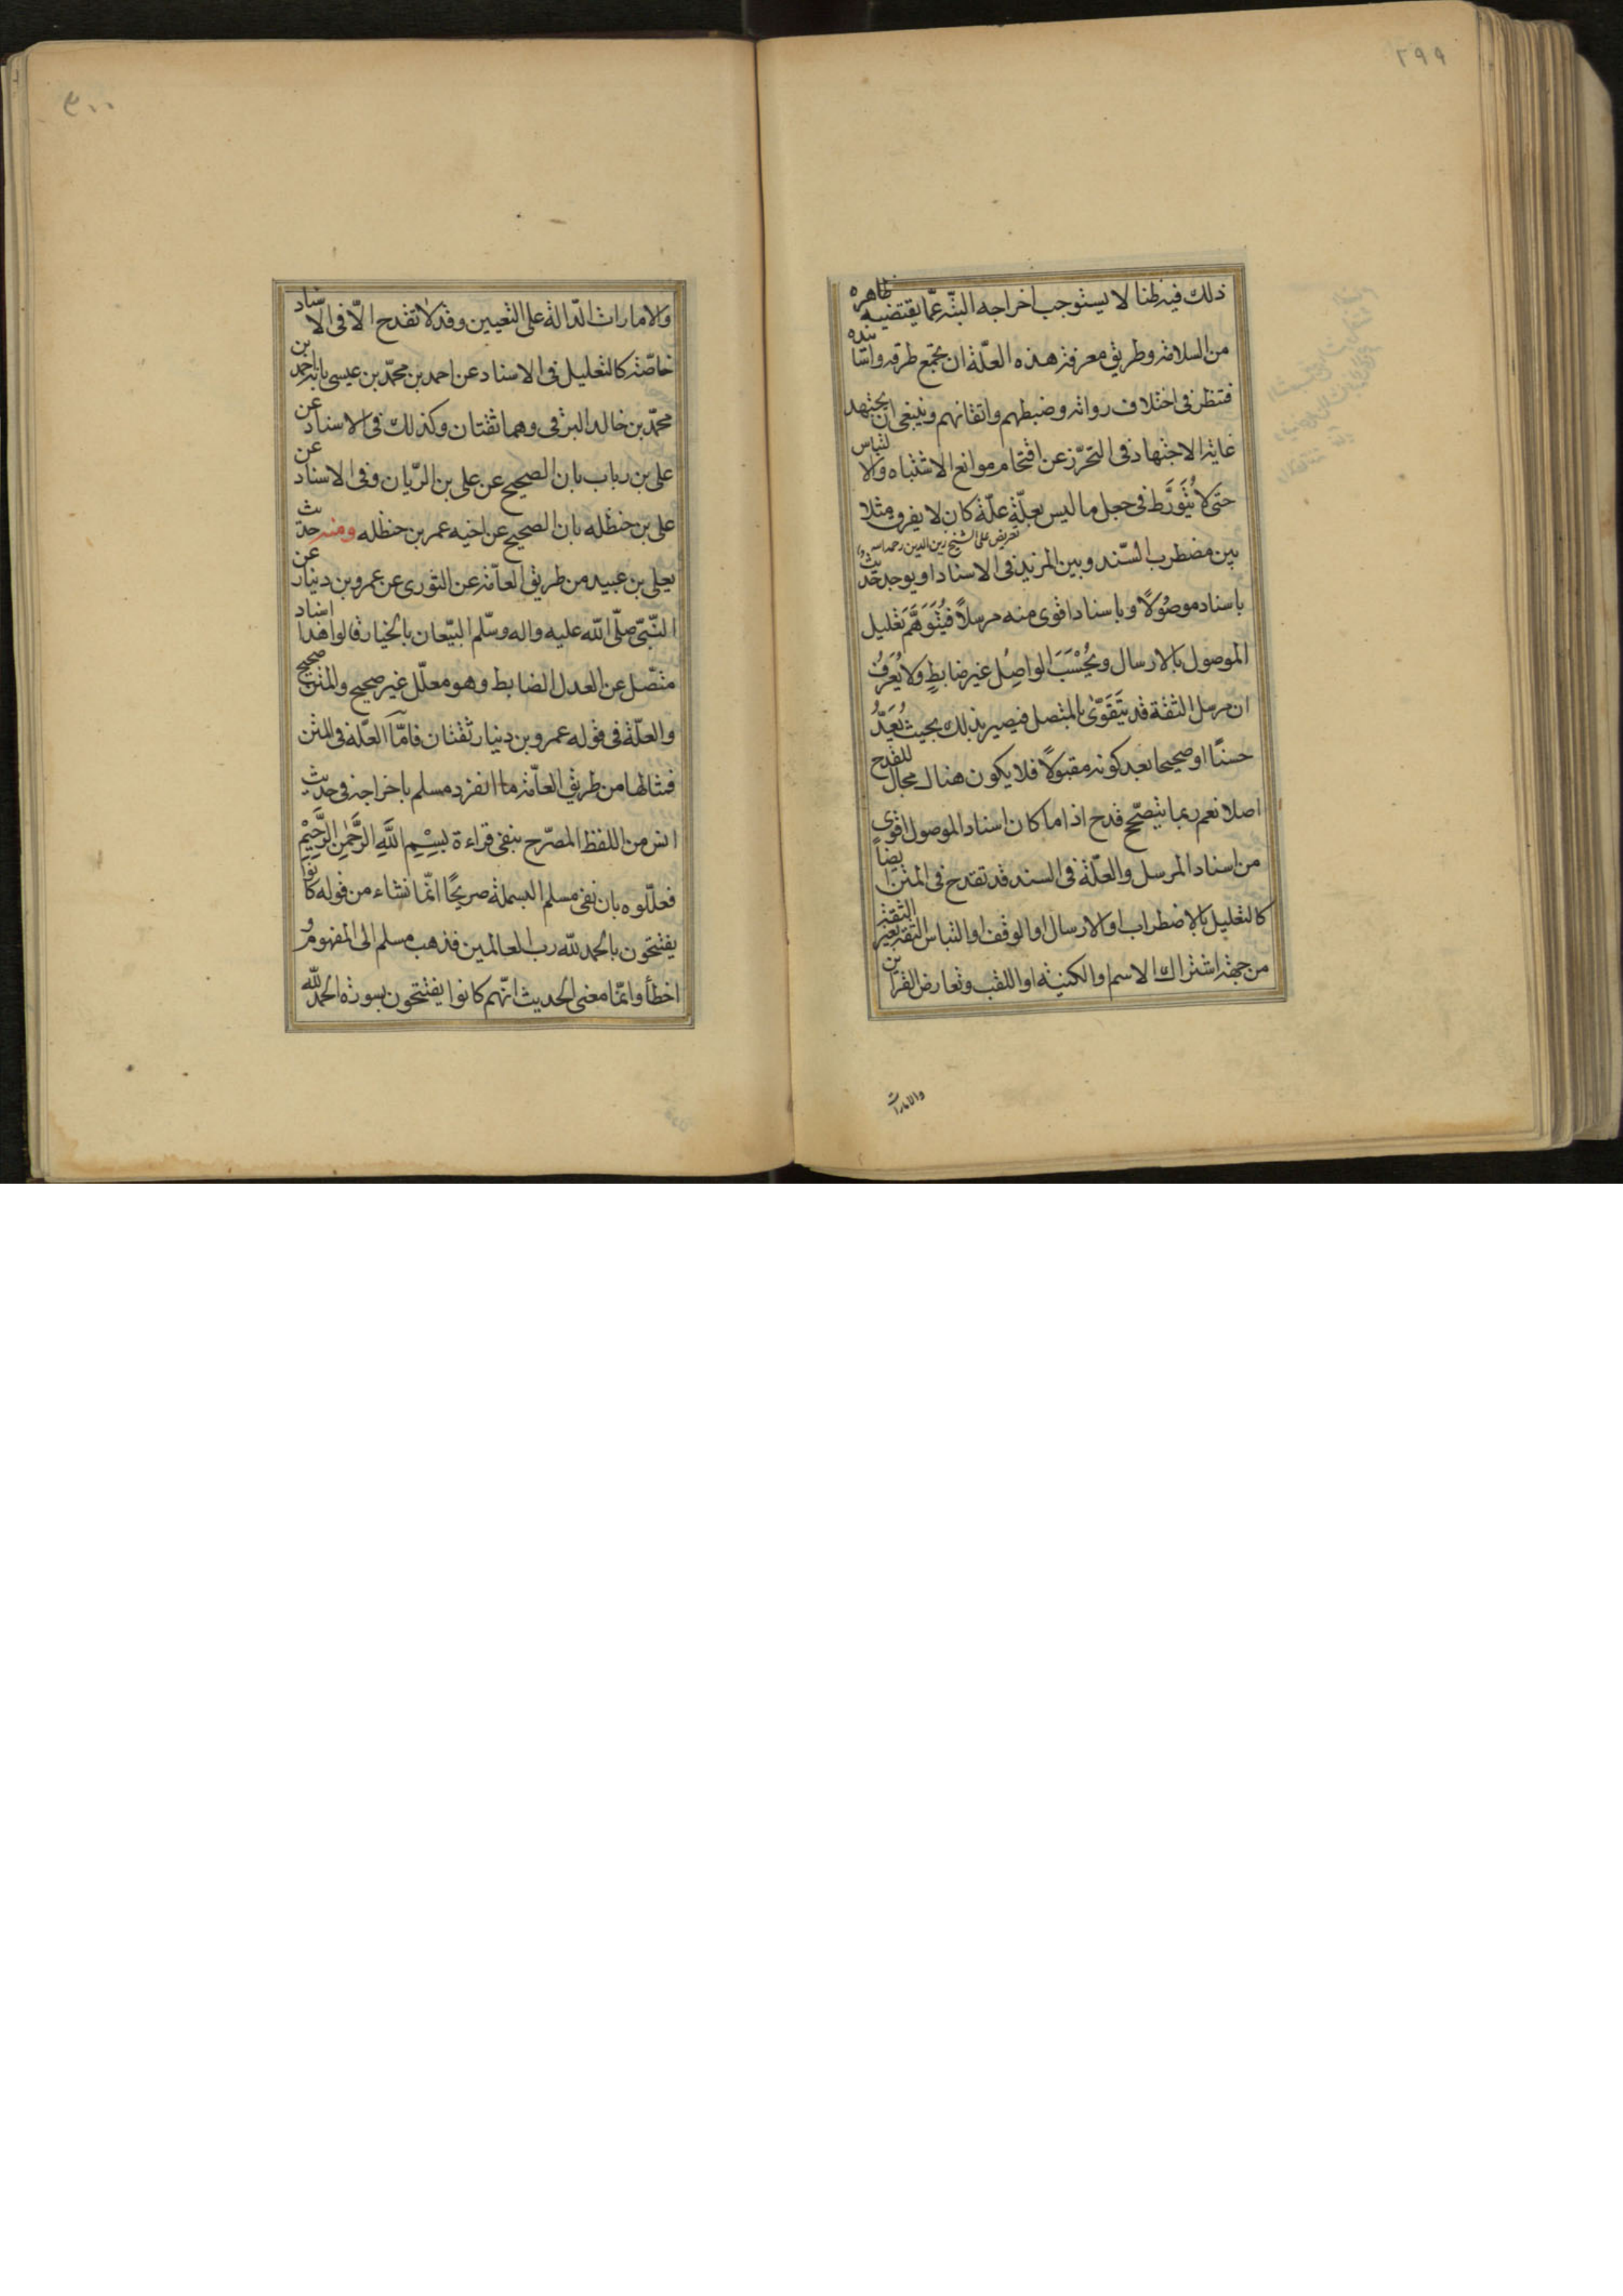 ٢٩٩
ذلك فيه ظنا لا يستوجب اخراجه البتّه عمّا يقتضيه ظاهره
من السلامة وطريق معرفة هذه العلّة ان تجمع طرقه واسانيده
فتنظر في اختلاف رواته وضبطهم واتقانهم وينبغي ان يجتهد
غاية الاجتهاد في التحرّز عن اقتحام موانع الاشتباه والالتباس
حتى لا يُتَوَرَّط في جعل ما ليس بعلّة علّة كان لا يفرق مثلا
تعريض على الشيخ زين الدين رحمه الله
بين مضطرب السّند وبين المزيد في الاسناد او يوجد حديث
باسناد موصُولًا وباسناد اقوى منه مرسلًا فَيُتَوَهَّم تعْليل
الموصول بالارسال ويُحْسَبَ الواصِل غير ضابطٍ ولا يُعَرفُ
ان مرسل الثقة قد يَتَقَوّىٰ بالمتصل فيصير بذلك بحيث يُعَدُّ
حسنًا او صحيحا بعد كونه مقبولًا فلا يكون هناك مجال للقدح
اصلا نعم ربما يتصحّح قدح اذا ما كان اسناد الموصول اقوى
من اسناد المرسل والعلّة في السند قد تقدح في المتن ايضاً
كالتعليل بالاضطراب او الارسال او الوقف او التباس الثقة بغير الثقة
من جهة اشتراك الاسم او الكنية او اللقب وتعارض القراين
والامارات
٣٠٠
والامارات الدّالة على التعيين وقد لا تقدح الّا في الاسناد
خاصّة كالتعليل في الاسناد عن احمد بن محمّد بن عيسى بانه احمد بن
محمّد بن خالد البرقي وهما ثقتان وكذلك في الاسناد عن
على بن رباب بان الصحيح عن على بن الرّيان وفي الاسناد عن
على بن حنظله بان الصحيح عن اخيه عمر بن حنظله ومنه حديث
يعلى بن عبيد من طريق العآمّة عن الثوري عن عمرو بن دينار عن
النّبىّ صلّى الله عليه واله وسلّم البيّعان بالخيار قالوا هذا اسناد
متّصل عن العدل الضابط وهو معلّل غير صحيح والمتن صحيح
والعلّة في قوله عمرو بن دينار ثقتان فامّا العلّة في المتن
فمثالها من طريق العامّة ما انفرد مسلم باخراجه في حديث
انس من اللفظ المصرّح بنفى قراءة بِسْمِ اللَّهِ الرَّحْمٰنِ الرَّحِيْمِ
فعلّلوه بان نفى مسلم البسملة صريحًا انّما نشاء من قوله كانوا
يفتتحون بالحمد لله رب العالمين فذهب مسلم الى المفهوم و
اخطأ وانمّا معنى الحديث انّهم كانوا يفتتحون بسورة الحمد لله